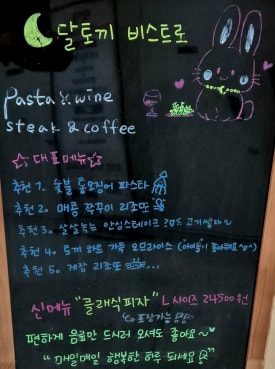 달토끼 비스트로
Pasta & wine
steak & coffee
☆대표메뉴☆
추천 1. 숯불 통오징어 파스타
추천 2. 매콤 쭈꾸미 리조또
추천 3. 살살녹는 안심스테이크
추천 4. 토끼 하트 가득 오므라이스 (아이들이 좋아해요~^^)
추천 5. 게장 리조또 ...
신메뉴 "클래식피자" L사이즈 24500원
포장가능
편하게 음료만 드시러 오셔도 좋아요~♡
"매일매일 행복한 하루 되세요"